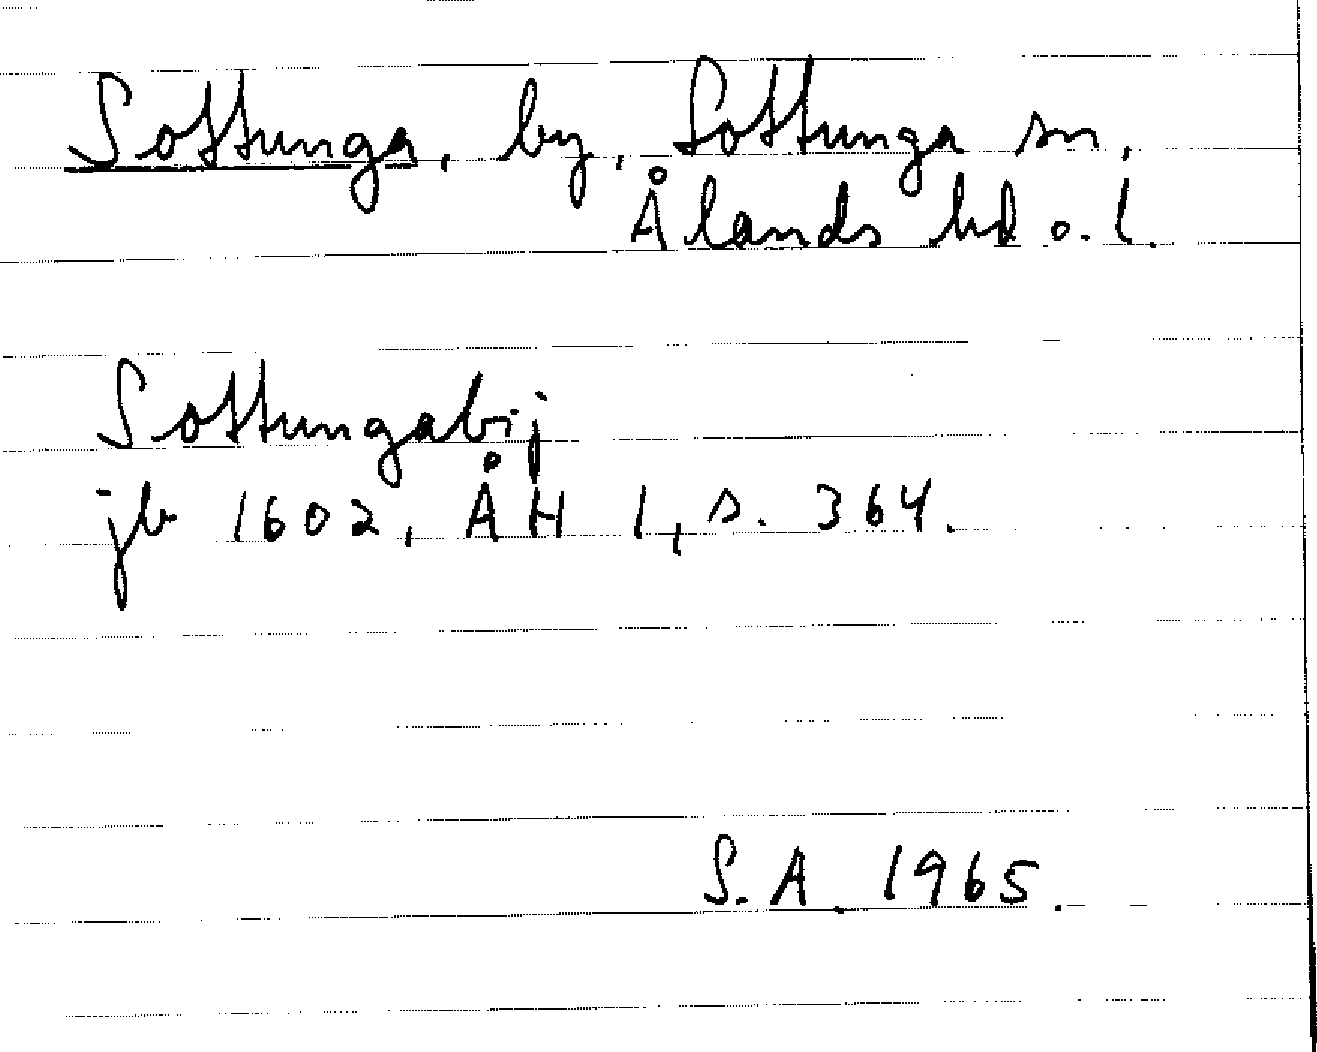 Sottunga, by, Sottunga sn,
Ålands hd o. l.
Sottungabij
jb 1602, ÅH 1, s. 364.
S.A. 1965.